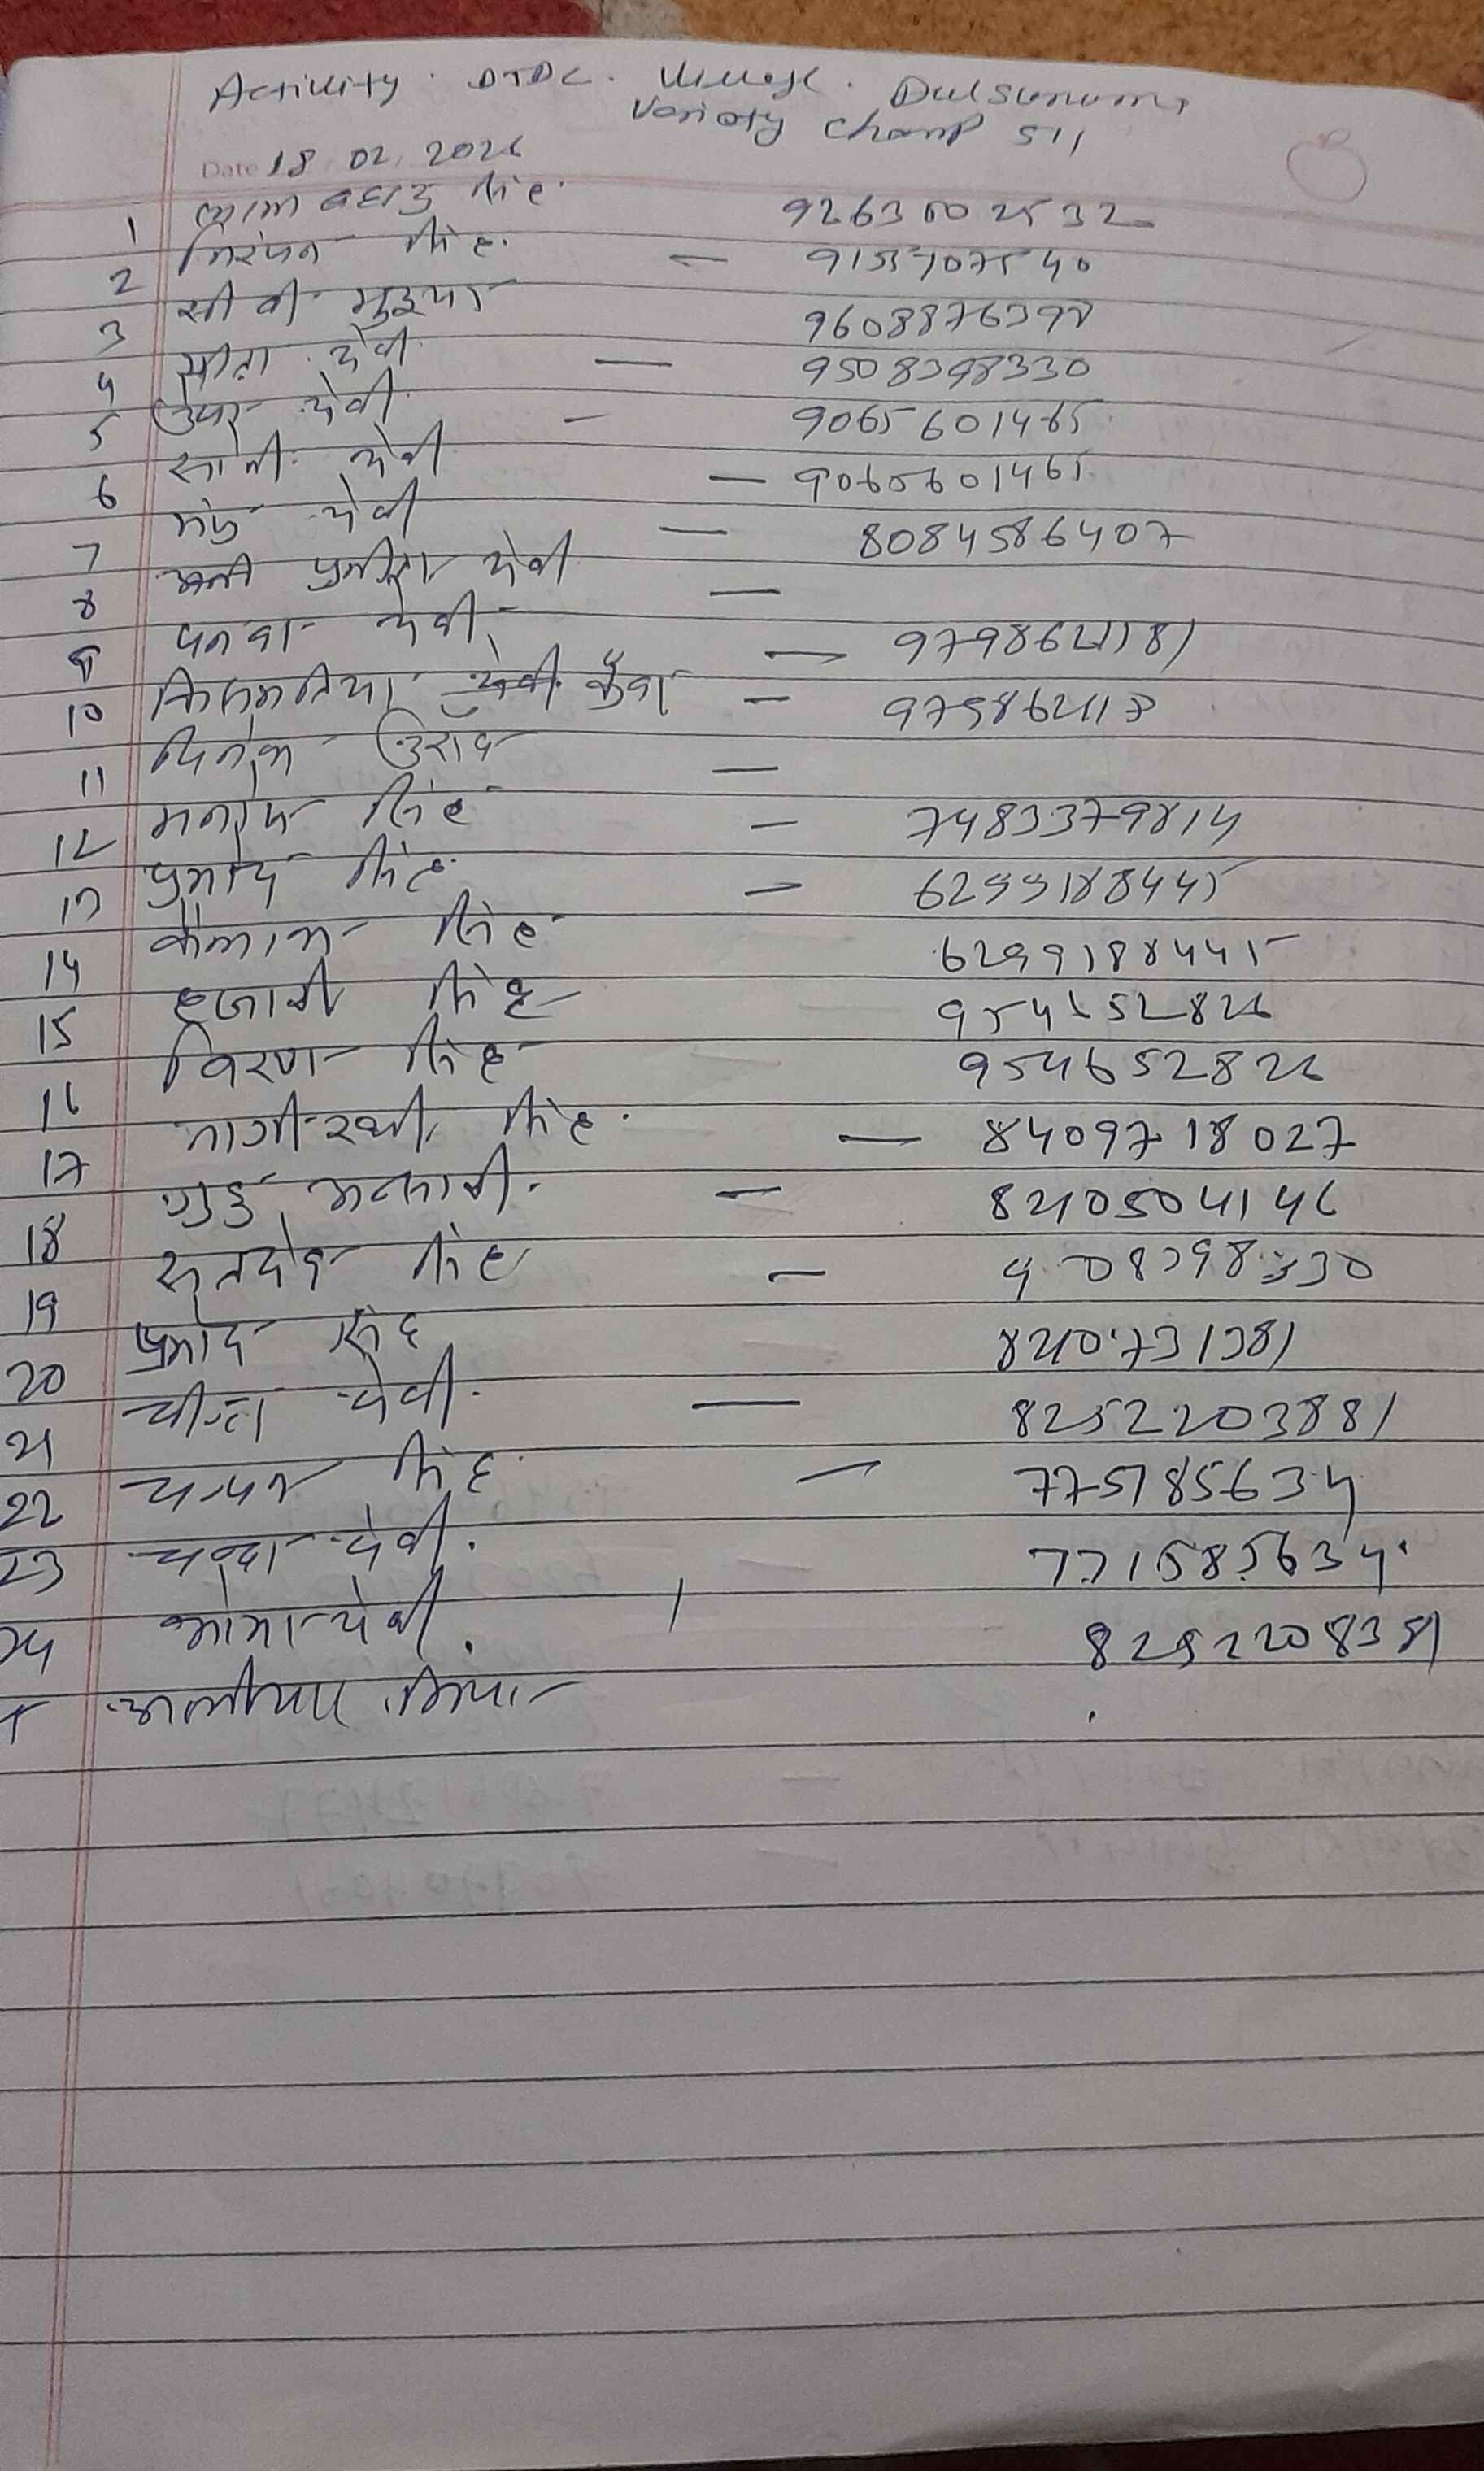 Activity. DTDC. Village. Dulsunuma
Variety Champ 511
Date 18 02. 2026
1 लाल बहादु सिंह. 9263502532
2 निरंजन सिंह. - 9153707540
3 सीवी भुइया 9608876398
4 सीता देवी — 9508398330
5 उषा देवी - 9065601465
6 सोनी देवी — 9065601465
7 मंजु देवी — 8084586407
8 प्रमीला देवी —
9 पनवा देवी — 9798621181
10 किसमतिया कुँवर - 979862117
11 दिनेश उराँव —
12 मनोज सिंह - 7483379814
13 प्रमोद सिंह - 6299188445
14 कैलाश सिंह 6299188445
15 हजारी सिंह 954652826
16 विरण सिंह 954652826
17 भागीरथी सिंह. — 8409718027
18 गुडु अन्सारी. - 8210504146
19 सतदेव सिंह - 9508398330
20 प्रमोद सिंह 8210731381
21 चीन्ता देवी. — 8252203881
22 चन्दन सिंह - 775185634
23 चन्दा देवी. 771585634
24 शोभा देवी. 8252208381
अलीयार मियां